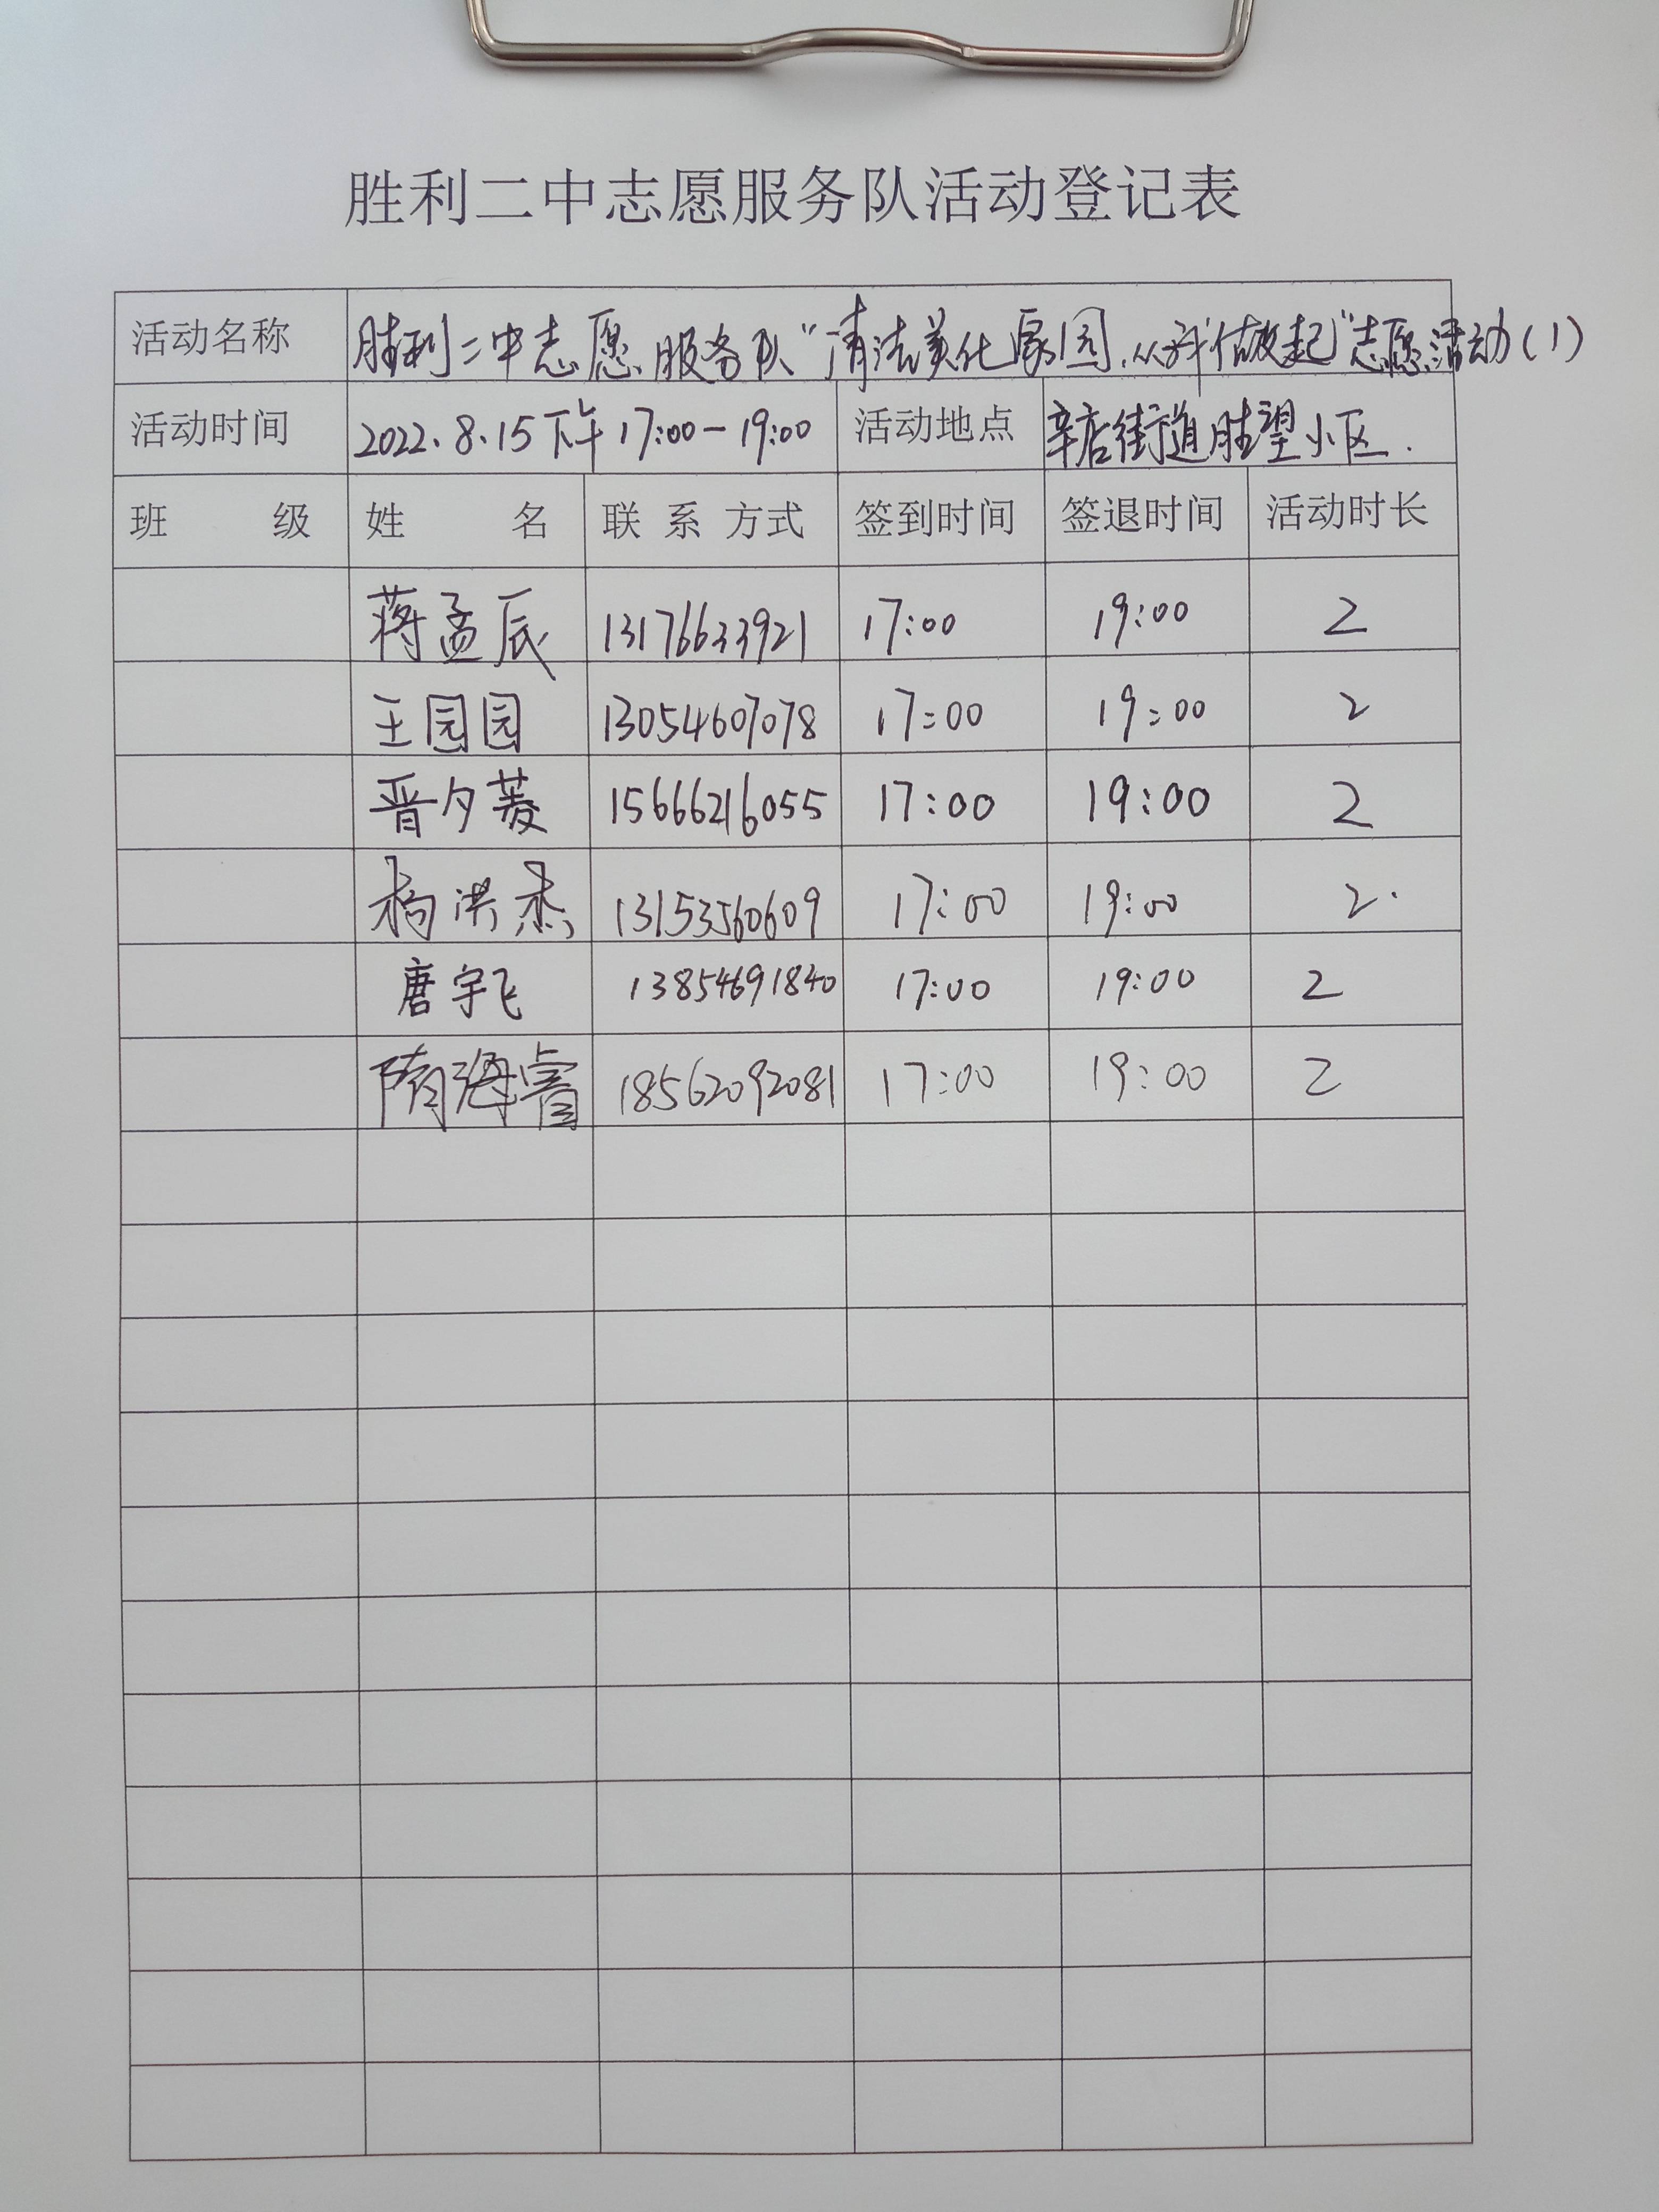 胜利二中志愿服务队活动登记表
活动名称 胜利二中志愿服务队“清洁美化家园，从我做起”志愿活动(1)
活动时间 2022.8.15下午17:00-19:00 活动地点 辛店街道胜望小区.
班 级 姓 名 联 系 方式 签到时间 签退时间 活动时长
蒋孟辰 13176633921 17:00 19:00 2
王园园 13054607078 17:00 19:00 2
晋夕菱 15666216055 17:00 19:00 2
杨洪杰 13153560609 17:00 19:00 2.
唐宇飞 13854691840 17:00 19:00 2
隋海睿 18562092081 17:00 19:00 2